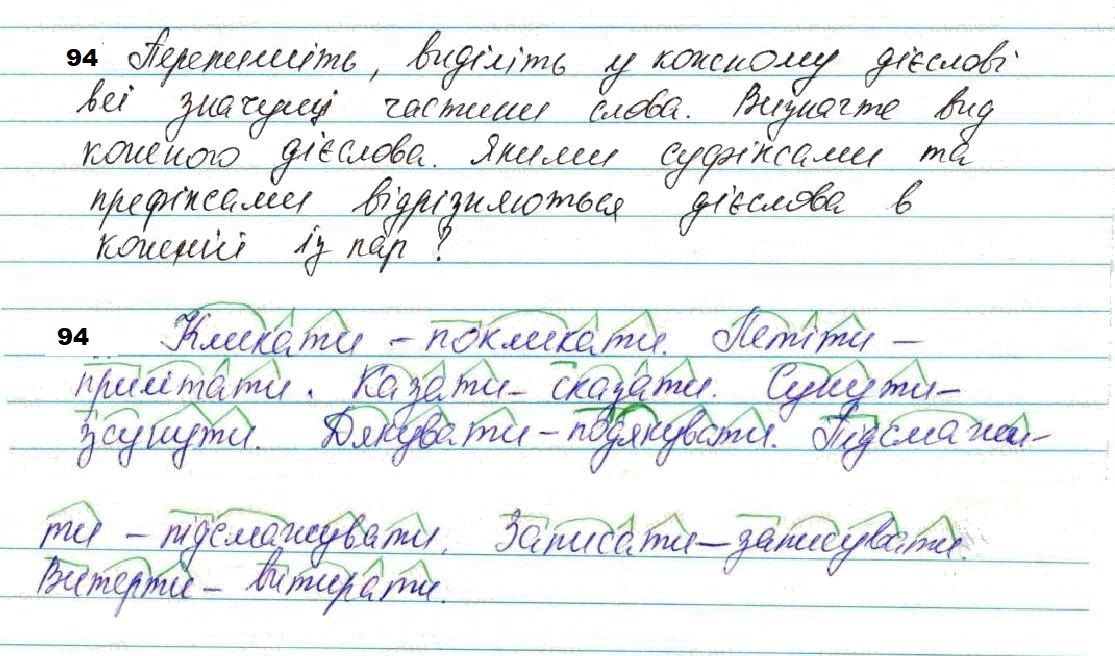 94 Перепишіть, виділіть у кожному дієслові
всі значущі частини слова. Визначте вид
кожного дієслова. Якими суфіксами та
префіксами відрізняються дієслова в
кожній із пар?
94 Кликати – покликати. Летіти –
прилітати. Казати – сказати. Сунути –
зсунути. Дякувати – подякувати. Підсмажи-
ти – підсмажувати. Записати – записувати.
Витерти – витирати.